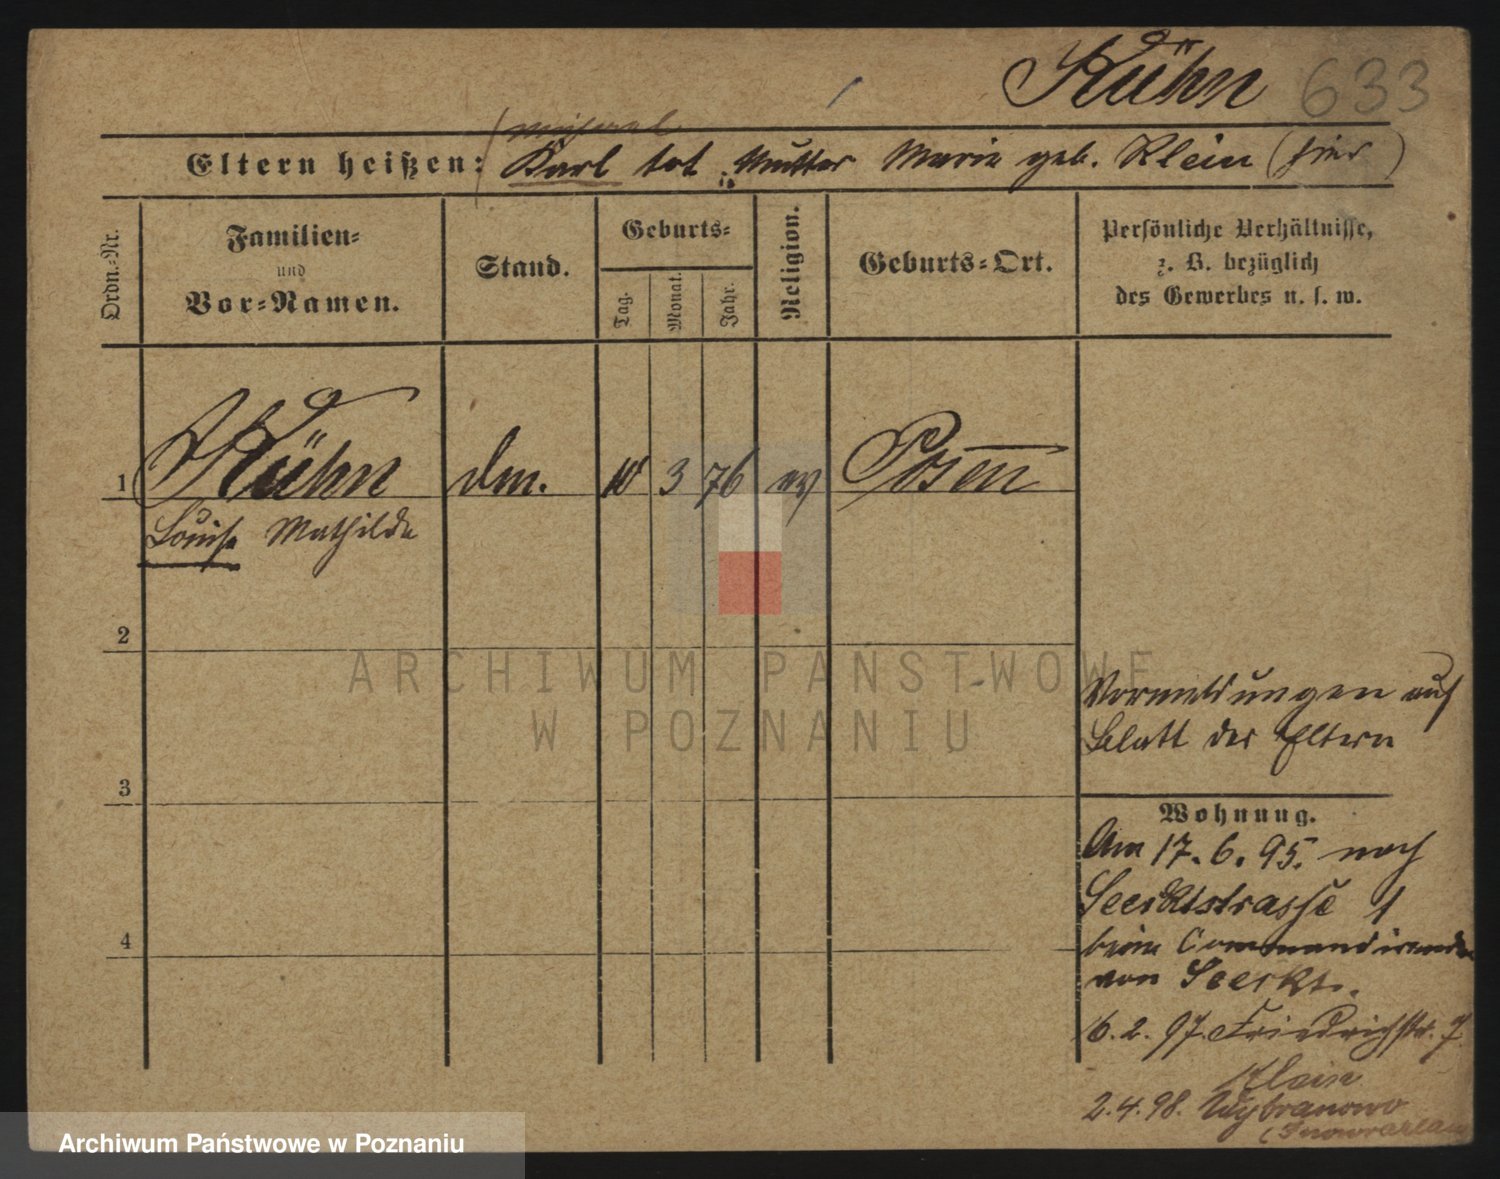 Kühn 633
Eltern heißen: Karl tot, Mutter Marie geb. Klein (hier)
Ordn.-Nr.
Familien-
und
Vor-Namen.
Stand.
Geburts-
Tag.
Monat.
Jahr.
Religion.
Geburts-Ort.
Persönliche Verhältnisse,
z. B. bezüglich
des Gewerbes u. s. w.
1 Kühn 3 76 ev Posen
Louise Mathilde
2
ARCHIWUM PAŃSTWOWE
W POZNANIU
Vormeldungen auf
Blatt der Eltern
3
Wohnung.
Am 17.6.95. nach
1
4
beim Commandirenden
von
6.2.97. Friedrichstr. 7
Klein
2.4.98. Wybranowo
(Inowrazlaw
Archiwum Państwowe w Poznaniu